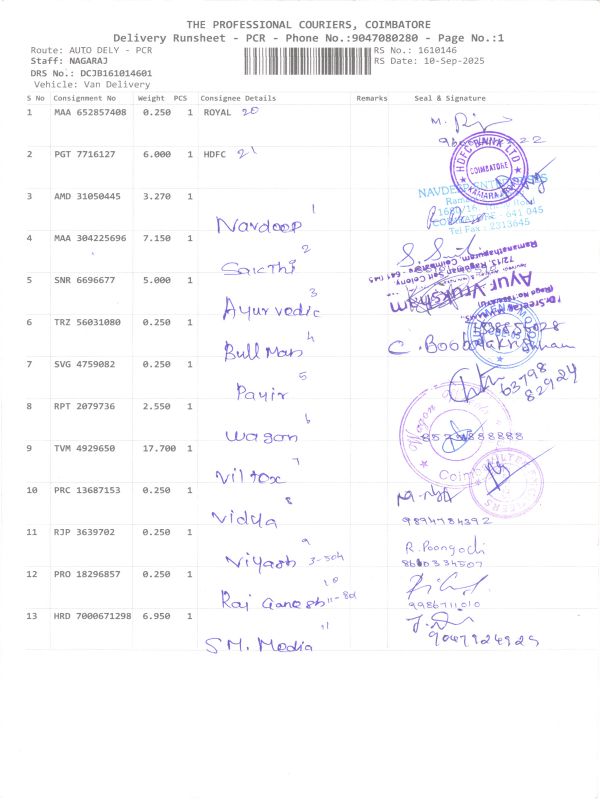 THE PROFESSIONAL COURIERS, COIMBATORE
Delivery Runsheet - PCR - Phone No.:9047080280 - Page No.:1
Route: AUTO DELY - PCR
RS No.: 1610146
Staff: NAGARAJ
RS Date: 10-Sep-2025
DRS No.: DCJB161014601
Vehicle: Van Delivery
S No Consignment No Weight PCS Consignee Details Remarks Seal & Signature
1 MAA 652857408 0.250 1 ROYAL 20
2 PGT 7716127 6.000 1 HDFC 21
HDFC BANK LTD
COIMBATORE
KAMARAJ ROAD
3 AMD 31050445 3.270 1
1
Navdeep
COIMBATORE - 641 045
Tel Fax : 2313645
4 MAA 304225696 7.150 1
2
Sakthi
5 SNR 6696677 5.000 1
3
Ayurvedic
Ayur Vruksham
6 TRZ 56031080 0.250 1
4
Bull Man
C. Boobalakrishnan
7 SVG 4759082 0.250 1
5
Payir
63798
82924
8 RPT 2079736 2.550 1
6
Wagon
Wagon
9 TVM 4929650 17.700 1
7
Viltox
Coim
10 PRC 13687153 0.250 1
8
Vidya
9894784392
11 RJP 3639702 0.250 1
9
R. Poongodi
8610334507
12 PRO 18296857 0.250 1
10
Raj Ganesh
9986711010
13 HRD 7000671298 6.950 1
11
S M. Media
9047924925